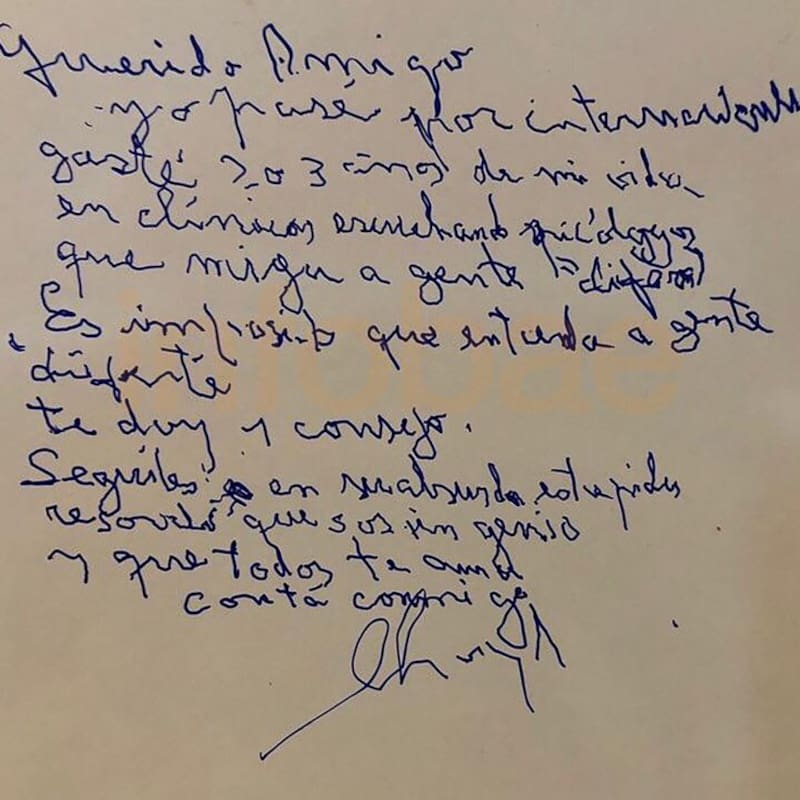 Querido Amigo
yo pasé por internaciones
gasté 2 o 3 años de mi vida
en clínicas escuchando psicólogos
que miran a gente "
Es imposible que entienda a gente
diferente
te doy 1 consejo.
Seguiles en su absurda estupidez
que sos un genio
y que todos te aman
contá conmigo
infobae